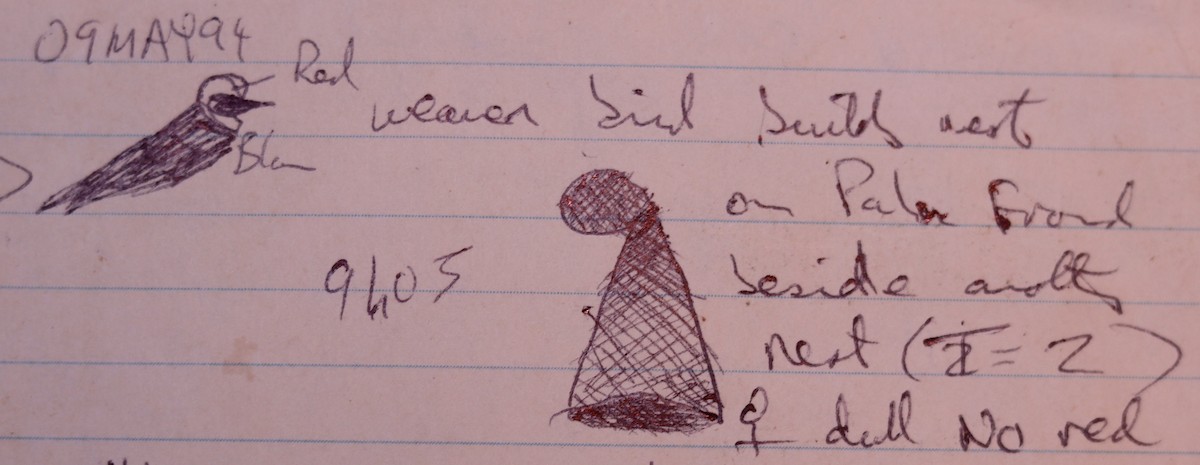 09MAY94
Red
weaver bird builds nest
on Palm Frond
9h05
beside another
nest (I = 2)
♀ dull No red